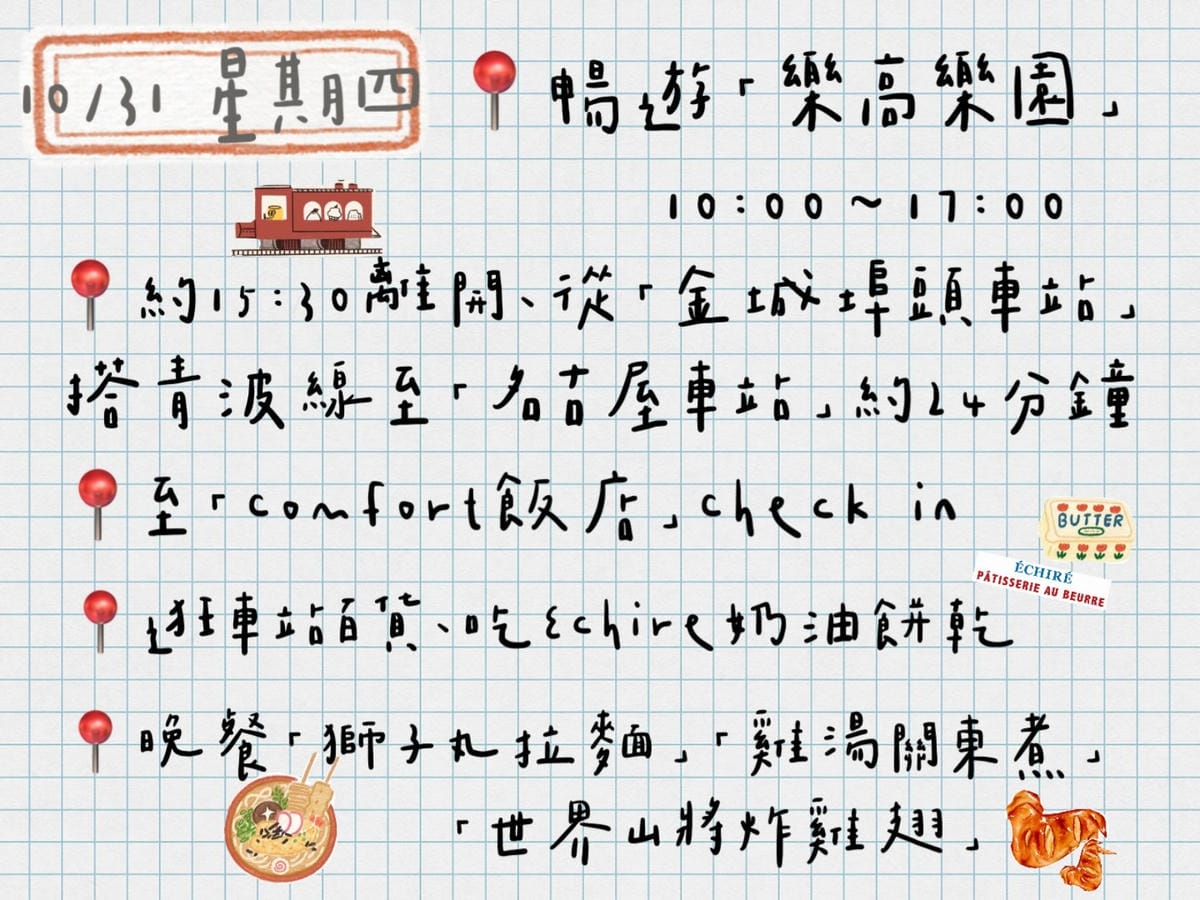 10/31 星期四
暢遊「樂高樂園」
10:00～17:00
約15:30離開、從「金城埠頭車站」
搭青波線至「名古屋車站」約24分鐘
至「comfort飯店」check in
BUTTER
ÉCHIRÉ
PÂTISSERIE AU BEURRE
逛車站百貨、吃Echire奶油餅乾
晚餐「獅子丸拉麵」「雞湯關東煮」
「世界山將炸雞翅」